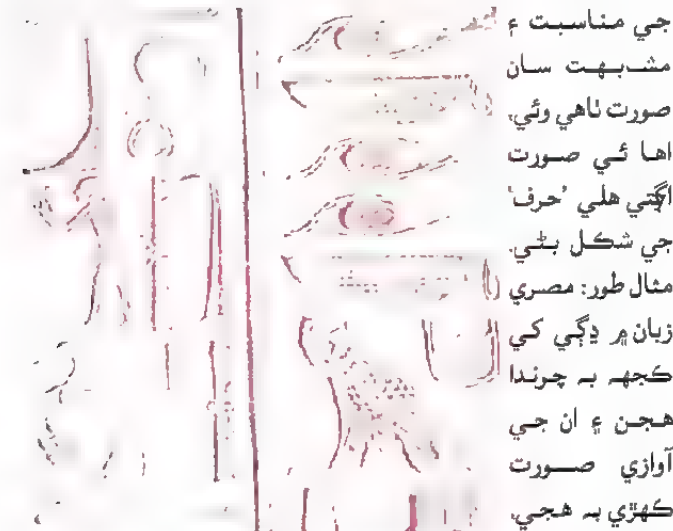 جي مناسبت ۽
مشبهت سان
صورت ٺاهي وئي،
اها ئي صورت
اڳتي هلي 'حرف'
جي شڪل بڻي.
مثال طور: مصري
زبان ۾ ڍڳي کي
ڪجهہ بہ چوندا
هجن ۽ ان جي
آوازي صورت
ڪهڙي بہ هجي،